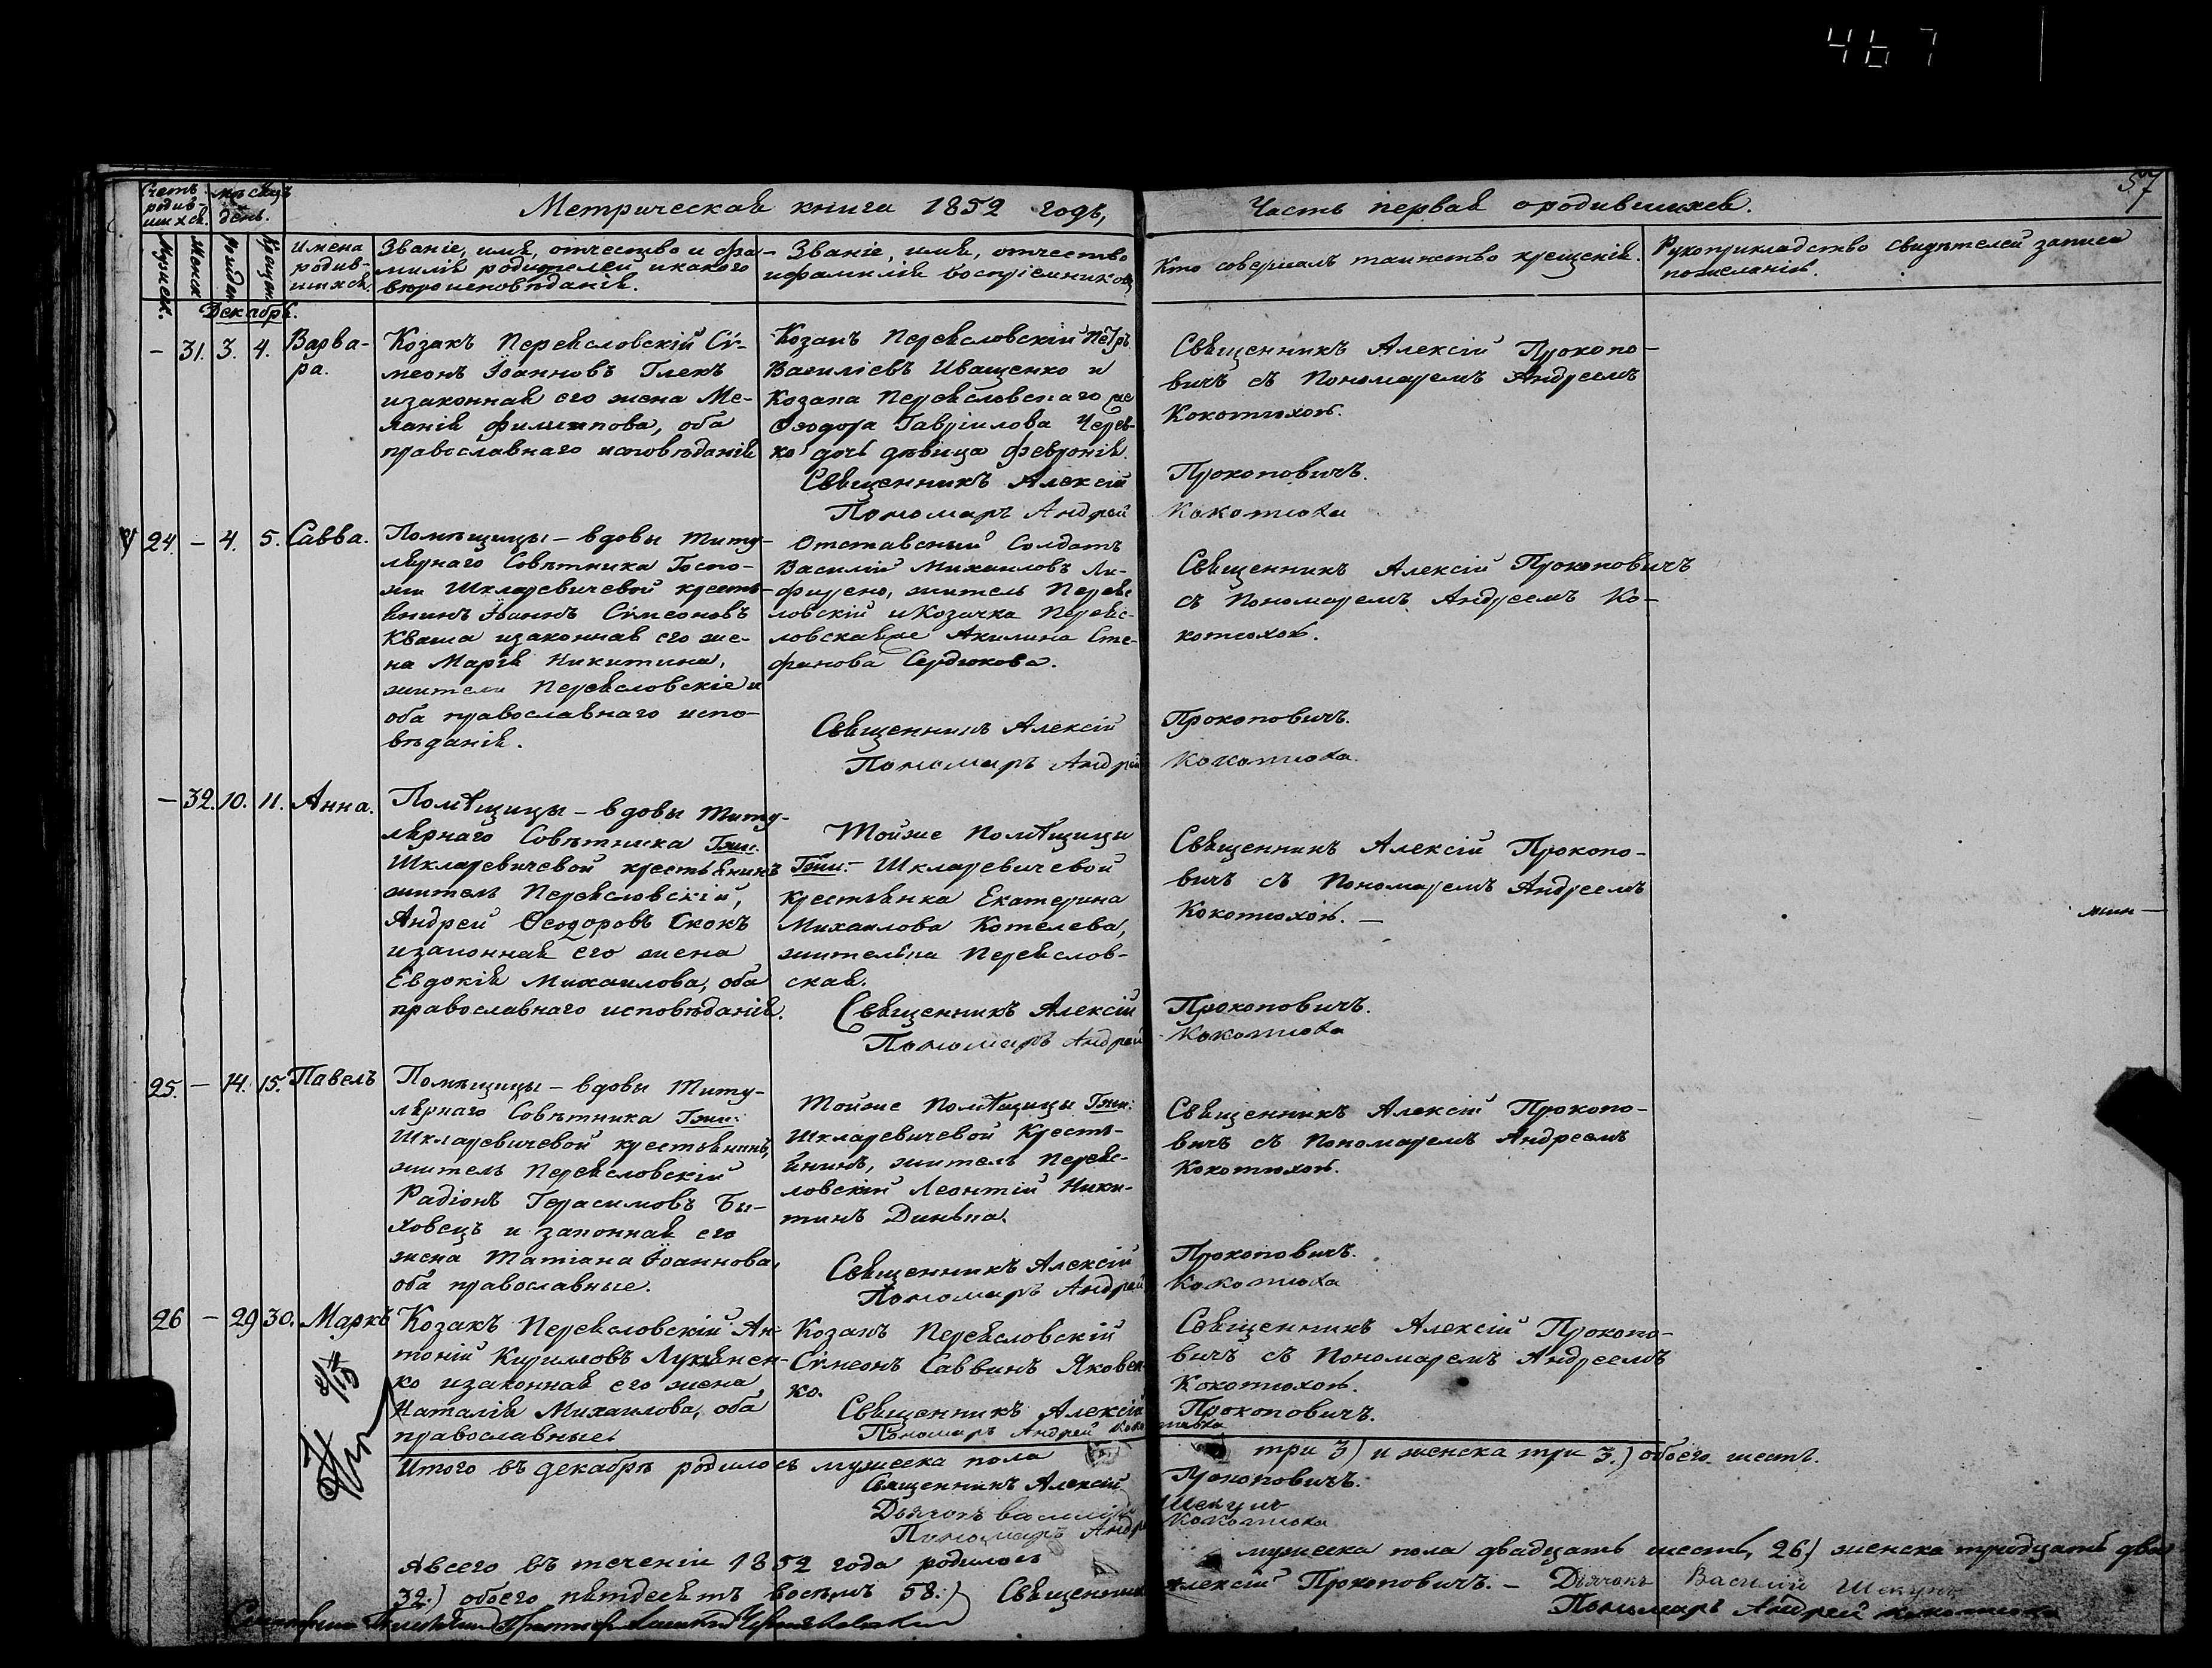 467
57
Метрическая книга 1852 годъ,
Часть первая о родившихся.
Счетъ родив-
шихся.
мѣсяцъ
и
день.
Мужеск.
Женск.
рожден.
Крещен.
Имена
родив-
шихся.
Званіе, имя, отчество и фа-
милія родителей и какого
вѣроисповѣданія.
Званіе, имя, отчество
и фамилія воспріемниковъ
Кто совершалъ таинство крещенія.
Рукоприкладство свидѣтелей записи
по желанію.
Декабрь.
– 31. 3. 4. Варва-
ра.
Козакъ Переясловскій Сѵ-
меонъ Іоанновъ Глекъ
и законная его жена Ме-
ланія Филиппова, оба
православнаго исповѣданія
Козакъ Переясловскій Петръ
Василіевъ Иващенко и
Козака Переясловскаго же
Ѳеодора Гавріилова Черев-
ко дочь дѣвица Февронія.
Священникъ Алексій Прокопо-
вичъ съ Пономаремъ Андреемъ
Кокотюхою.
Священникъ Алексій Прокоповичъ.
Пономарь Андрей Кокотюха
24. – 4. 5. Савва.
Помѣщицы – вдовы Титу-
лярнаго Совѣтника Госпо-
жи Шкляревичевой кресть-
янинъ Іоаннъ Сѵмеоновъ
Кваша и законная его же-
на Марія Никитина,
жители Переясловскіе и
оба православнаго испо-
вѣданія.
Отставный Солдатъ
Василій Михаиловъ Ли-
фиренко, житель Переяс-
ловскій и Козачка Переяс-
ловская же Акилина Сте-
фанова Сердюкова.
Священникъ Алексій Прокоповичъ
съ Пономаремъ Андреемъ Ко-
котюхою.
Священникъ Алексій Прокоповичъ.
Пономарь Андрей Кокотюха
– 32. 10. 11. Анна.
Помѣщицы – вдовы Титу-
лярнаго Совѣтника Гжи:
Шкляревичевой крестьянинъ
житель Переясловскій,
Андрей Ѳеодоровъ Скокъ
и законная его жена
Евдокія Михаилова, оба
православнаго исповѣданія.
Тойже Помѣщицы
Гжи: Шкляревичевой
крестьянка Екатерина
Михаилова Котелева,
жителька Переяслов-
ская.
Священникъ Алексій Прокопо-
вичъ съ Пономаремъ Андреемъ
Кокотюхою. –
Священникъ Алексій Прокоповичъ.
Пономарь Андрей Кокотюха
25. – 14. 15. Павелъ
Помѣщицы – вдовы Титу-
лярнаго Совѣтника Гжи:
Шкляревичевой крестьянинъ,
житель Переясловскій
Радіонъ Герасимовъ Бы-
ховецъ и законная его
жена Татіана Іоаннова,
оба православные.
Тойже Помѣщицы Гжи:
Шкляревичевой Кресть-
янинъ, житель Переяс-
ловскій Леонтій Ники-
тинъ Динька.
Священникъ Алексій Прокопо-
вичъ съ Пономаремъ Андреемъ
Кокотюхою.
Священникъ Алексій Прокоповичъ.
Пономарь Андрей Кокотюха
26 – 29 30. Маркъ
Козакъ Переясловскій Ан-
тоній Кириловъ Лукянен-
ко и законная его жена
Наталія Михаилова, оба
православные.
Козакъ Переясловскій
Сѵмеонъ Саввинъ Яковен-
ко.
Священникъ Алексій Прокопо-
вичъ съ Пономаремъ Андреемъ
Кокотюхою.
Священникъ Алексій Прокоповичъ.
Пономарь Андрей Кокотюха
Итого въ декабрѣ родилось мужеска пола три 3) и женска три 3.) обоего шесть.
Священникъ Алексій Прокоповичъ.
Дьячокъ Василій Шекунъ
Пономарь Андрей Кокотюха
А всего въ теченіи 1852 года родилось мужеска пола двадцать шесть, 26.) женска тридцать два
32.) обоего пятдесятъ восемь 58.) Священникъ Алексій Прокоповичъ. – Дьячокъ Василій Шекунъ
Пономарь Андрей Кокотюха